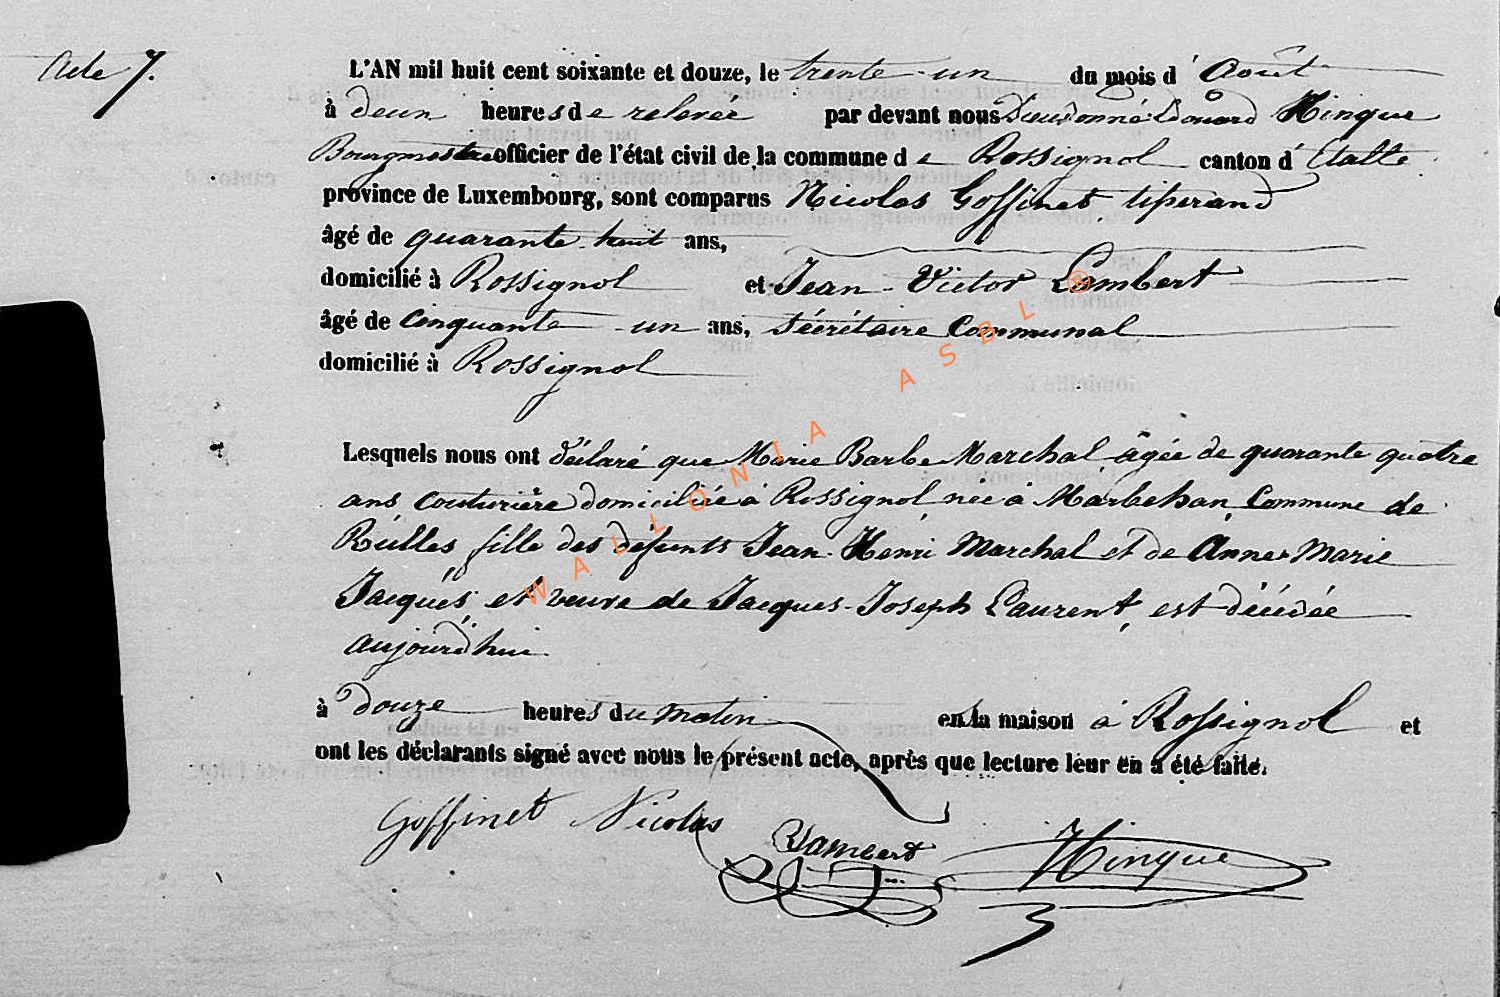 Acte 7.
L'AN mil huit cent soixante et douze, le trente-un du mois d'Août
à deux heures de relevée par devant nous Dieudonné Edouard Hinque
Bourgmestre officier de l'état civil de la commune de Rossignol canton d'Etalle
province de Luxembourg, sont comparus Nicolas Goffinet, tisserand
âgé de quarante-huit ans,
domicilié à Rossignol et Jean-Victor Lambert
âgé de cinquante-un ans, sécrétaire Communal
domicilié à Rossignol
Lesquels nous ont déclaré que Marie Barbe Marchal âgée de quarante quatre
ans couturière domiciliée à Rossignol née à Marbehan, Commune de
Rulles fille des défunts Jean-Henri Marchal et de Anne-Marie
Jacques et veuve de Jacques-Joseph Laurent, est décédée
aujourd'hui
à douze heures du matin en la maison à Rossignol et
ont les déclarants signé avec nous le présent acte, après que lecture leur en a été faite.
Goffinet Nicolas Lambert Hinque
WALLONIA ASBL ®